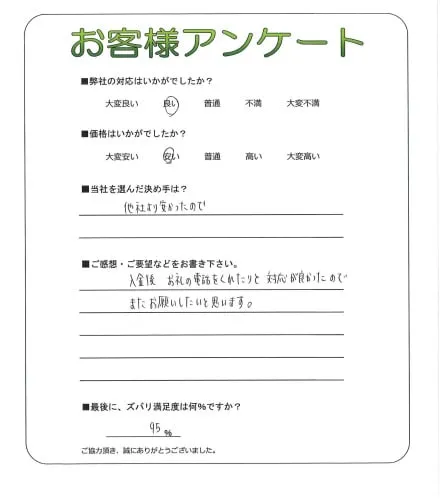 お客様アンケート
■弊社の対応はいかがでしたか？
大変良い 良い 普通 不満 大変不満
■価格はいかがでしたか？
大変安い 安い 普通 高い 大変高い
■当社を選んだ決め手は？
他社より安かったので
■ご感想・ご要望などをお書き下さい。
入金後 お礼の電話をくれたりと 対応が良かったので
またお願いしたいと思います。
■最後に、ズバリ満足度は何%ですか？
95 %
ご協力頂き、誠にありがとうございました。